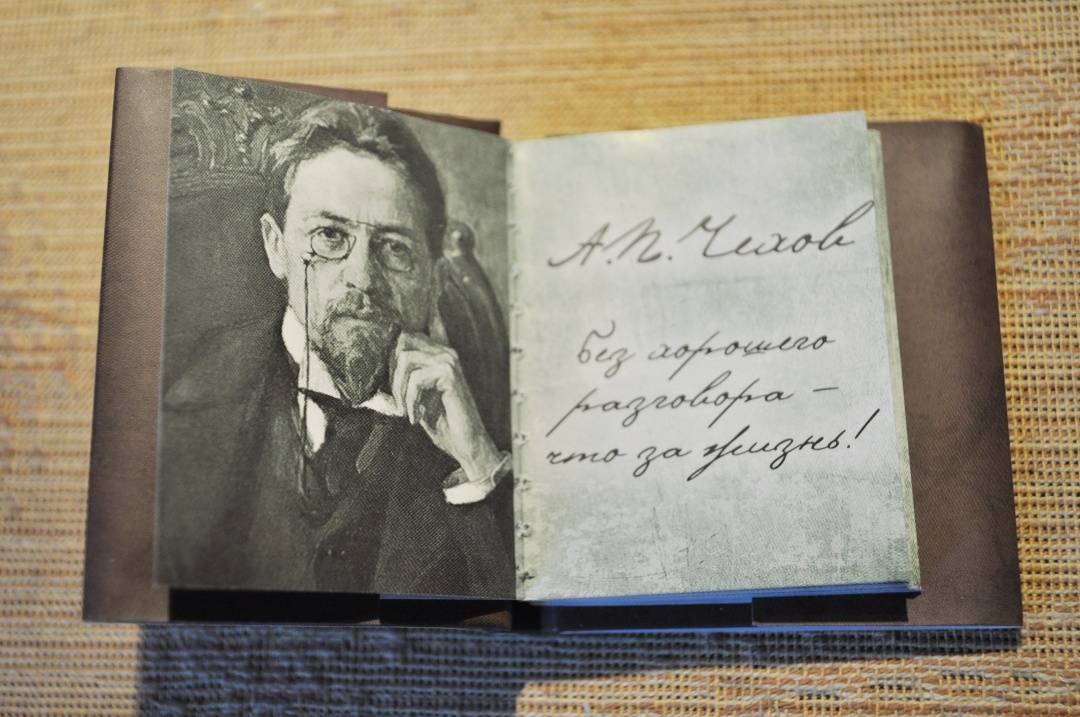 А.П. Чехов
без хорошего
разговора –
что за жизнь!